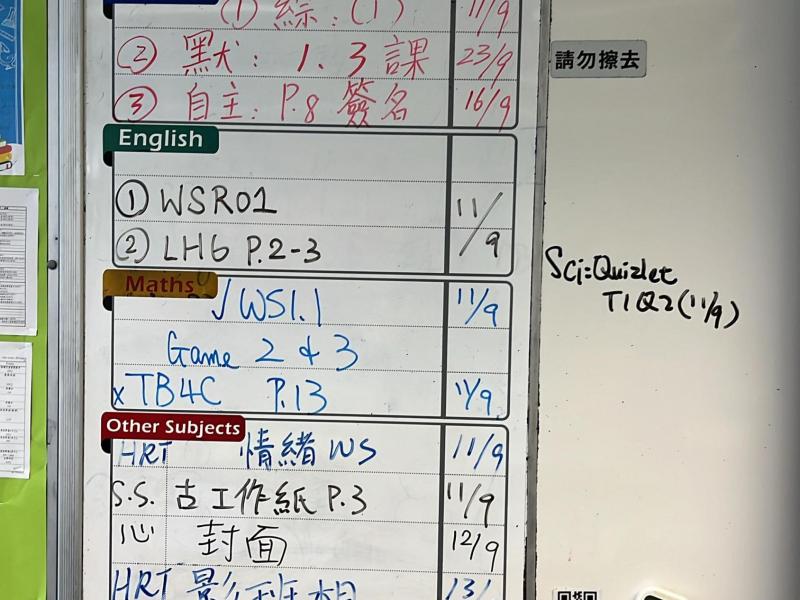 ① 綜: (1) 11/9
② 默: 1. 3 課 23/9
③ 自主: P.8 簽名 16/9
English
① WSR01 11/9
② LH6 P.2-3
Maths
√ WS1.1 11/9
Game 2 & 3
x TB4C P.13 11/9
Other Subjects
HRT 情緒 WS 11/9
S.S. 古工作紙 P.3 11/9
心 封面 12/9
HRT 影班相 13/
請勿擦去
Sci: Quizlet
T1Q2 (11/9)